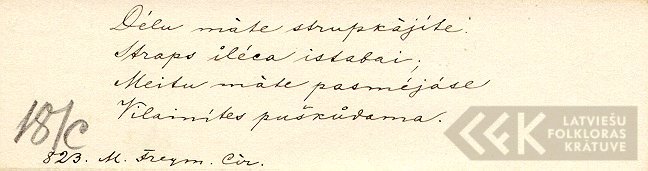 Dēlu māte strupkājīte:
Straps ilēca istabai;
Meitu māte pasmējāse
Vilainītes puškůdama.
18/C
823. M. Freym. Cir.
LATVIEŠU
FOLKLORAS
KRĀTUVE